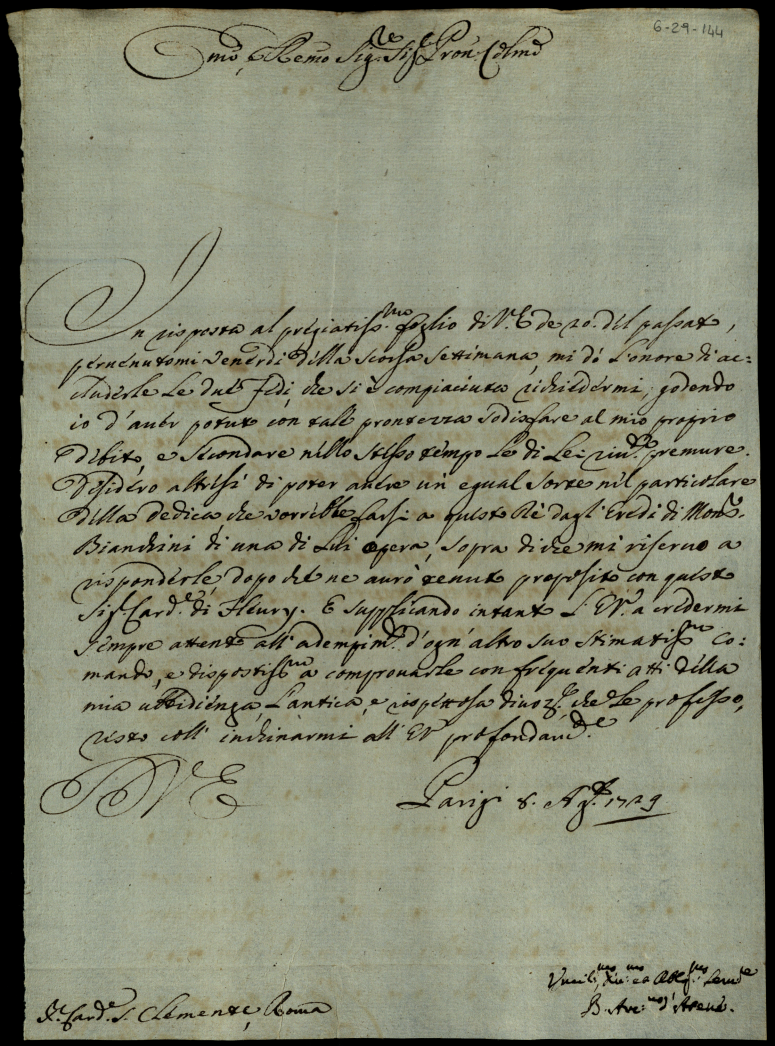 6-29-144
Emo, e Remo Sig.re Sig.r Pron. Colmo
In risposta al pregiatiss.mo foglio di V. E. de 20. del passato,
pervenutomi Venerdì della scorsa settimana, mi dò l'onore di ac=
cluderle le due fedi, che si è compiaciuta richiedermi, godendo
io d'aver potuto con tale prontezza sodisfare al mio proprio
debito, e secondare nello stesso tempo le di Lei riv.te premure.
Desidero altresì di poter avere un egual sorte nel particolare
della dedica, che vorrebbe farsi a questo Rè dagl'Eredi di Mons.r
Bianchini di una di lui opera, sopra di che mi riservo a
risponderle, dopo che ne avrò tenuto proposito con questo
Sig.r Card.le di Fleury. E supplicando intanto l'E.V. a credermi
sempre attento all'adempim.to d'ogn'altro suo stimatiss.mo co=
mando, e dispostiss.mo a comprovarle con frequenti atti della
mia ubbidienza, l'antica, e rispettosa divoz.e che Le professo,
resto coll' inchinarmi all' E.V. profondam.te
D V E
Parigi 8. Ag.to 1729
S.r Card.le S. Clemente, Roma
Umili.mo Div.mo ed Obblig.mo Serv.re
B. Arc.vo d'Atene.